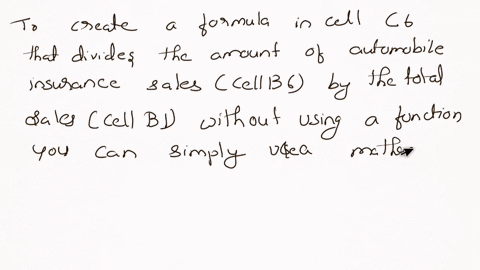 To create a formula in cell C6
that divides the amount of automobile
insurance sales (cell B6) by the total
sales (cell B1) without using a function
you can simply use a mathe